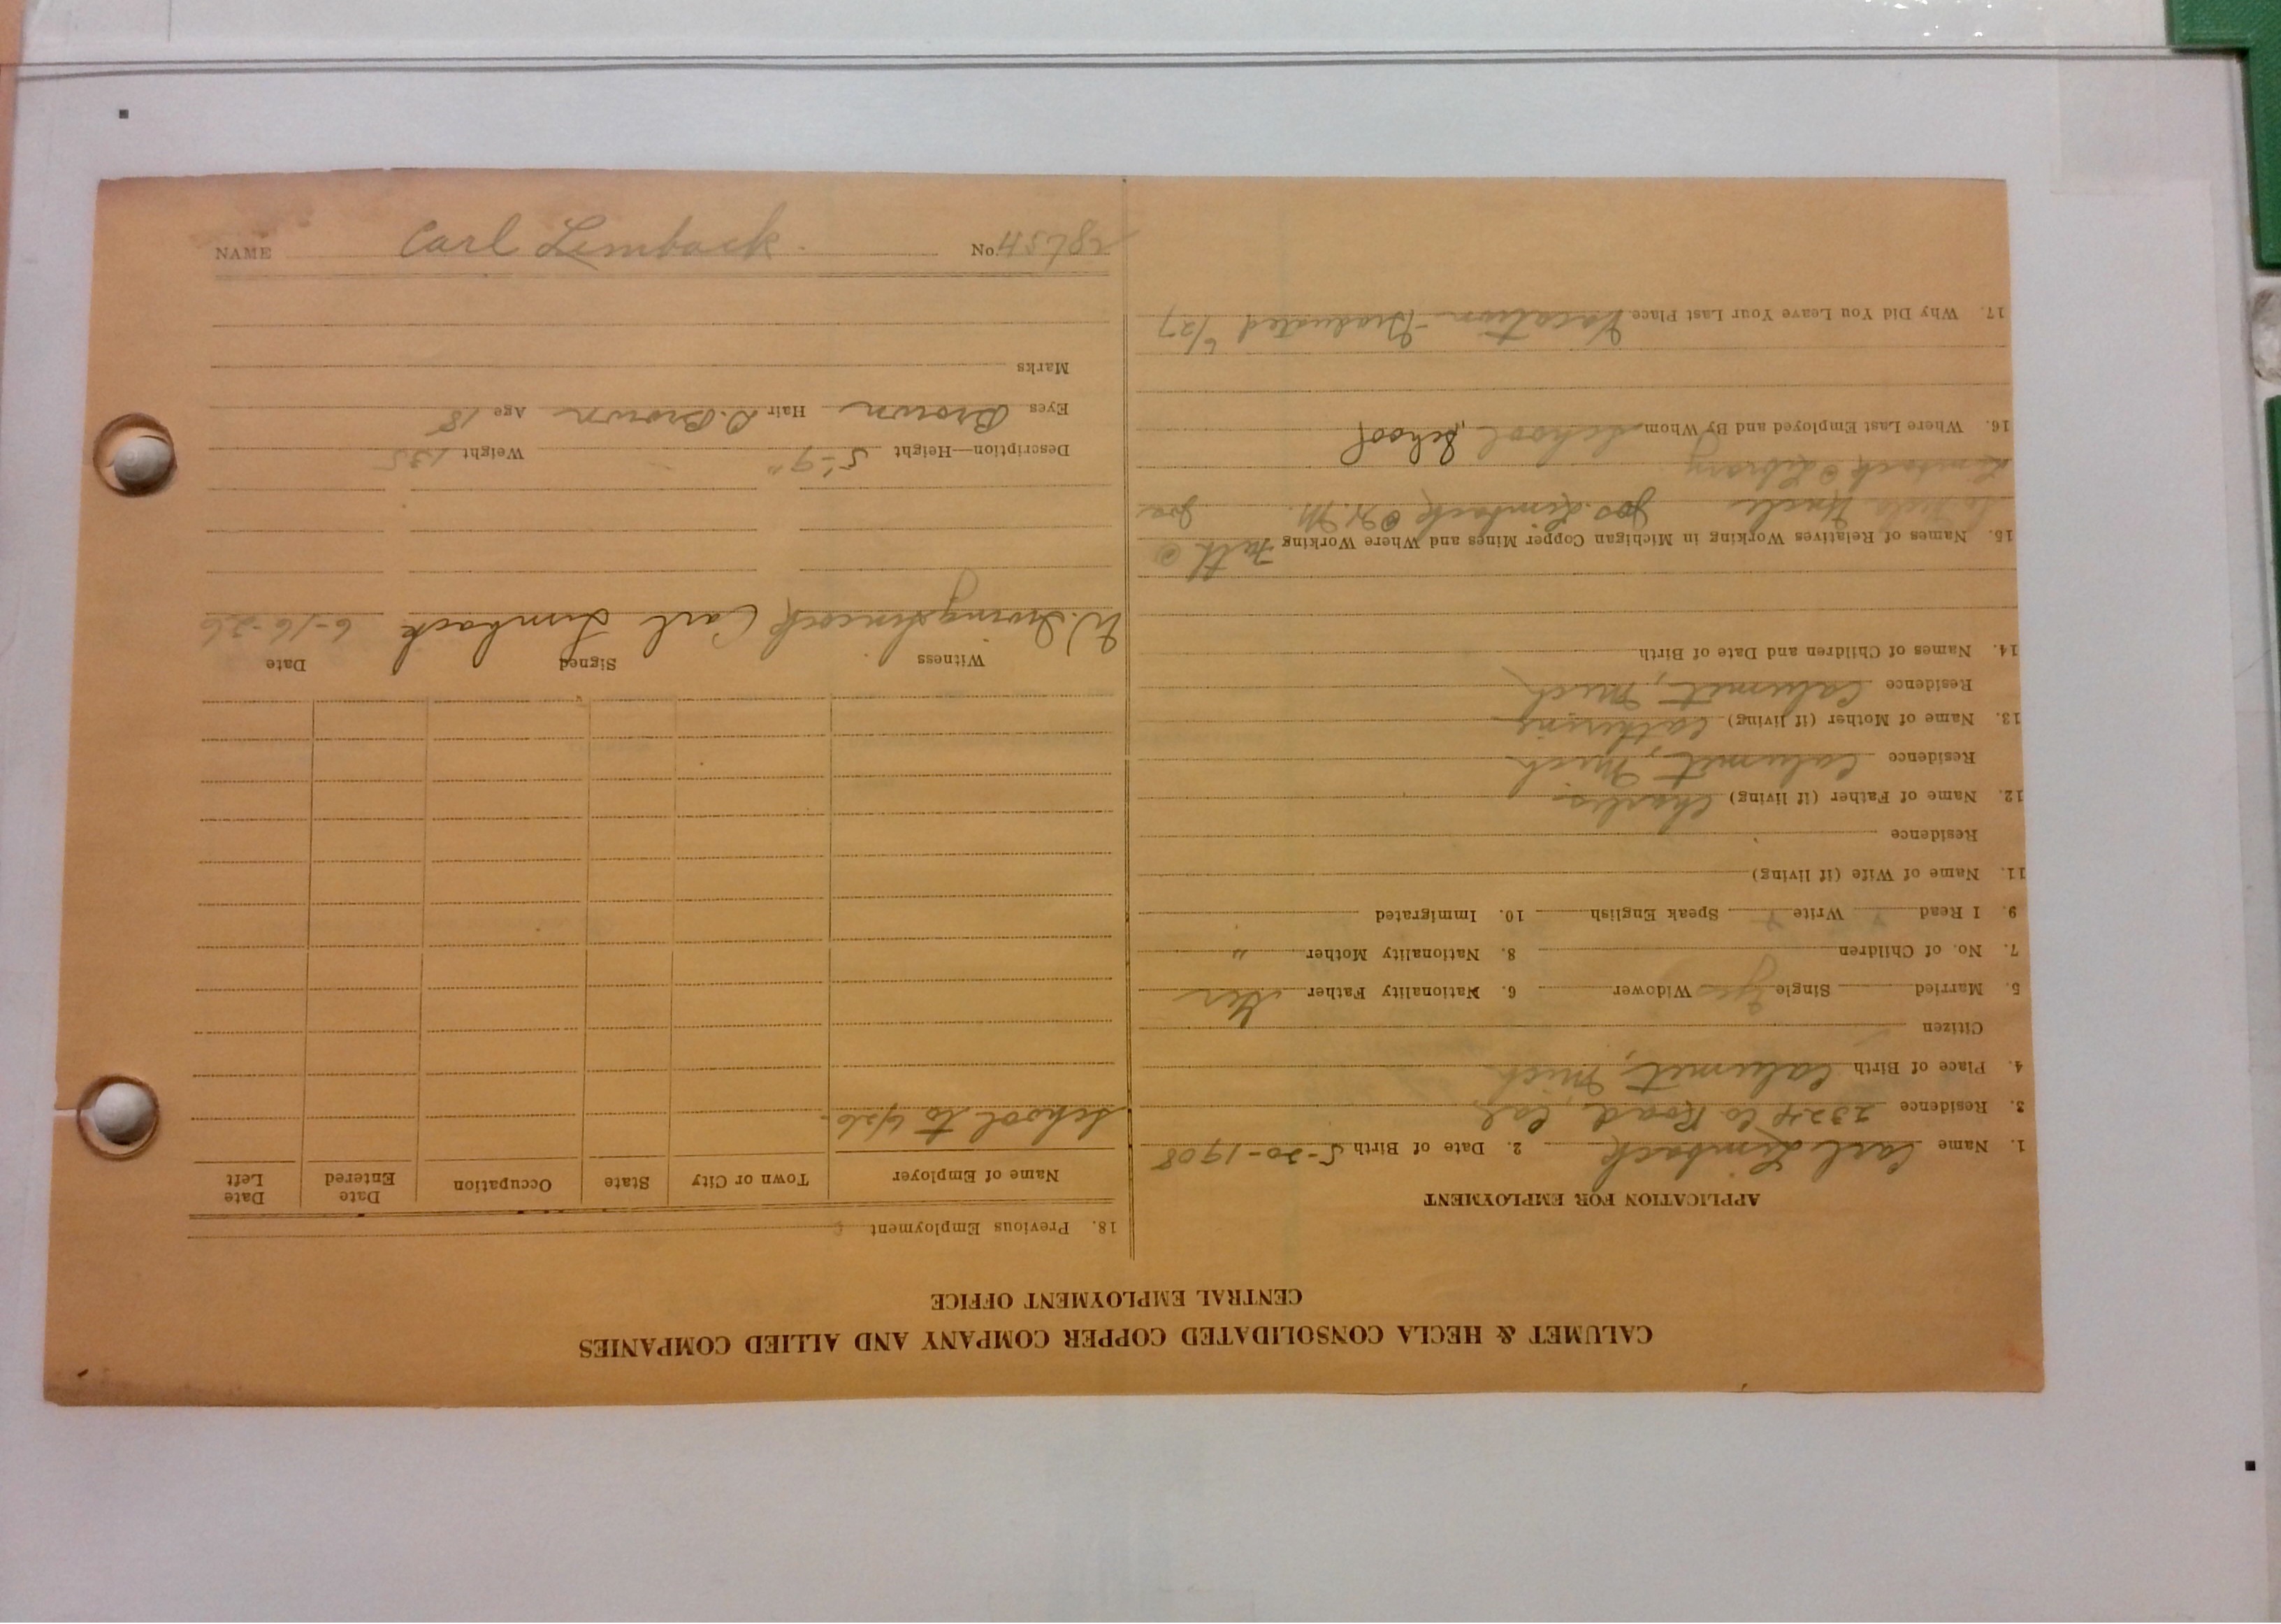 CALUMET & HECLA CONSOLIDATED COPPER COMPANY AND ALLIED COMPANIES
CENTRAL EMPLOYMENT OFFICE
APPLICATION FOR EMPLOYMENT
1. Name Carl Limback 2. Date of Birth 5-20-1908
3. Residence 2324 Co Road, Cal,
4. Place of Birth Calumet, Mich
Citizen
5. Married Single Yes Widower 6. Nationality Father Ger
7. No. of Children 8. Nationality Mother "
9. I Read Y Write Y Speak English 10. Immigrated
11. Name of Wife (if living)
Residence
12. Name of Father (if living) Charles
Residence Calumet, Mich
13. Name of Mother (if living) Catherine
Residence Calumet, Mich
14. Names of Children and Date of Birth
15. Names of Relatives Working in Michigan Copper Mines and Where Working Fath @
Uncle Jos. Limback @ N. M. Jos
Limback @ Library
16. Where Last Employed and By Whom School, School
17. Why Did You Leave Your Last Place Vacation - Graduated 6/27
18. Previous Employment
Name of Employer Town or City State Occupation Date Entered Date Left
School to 6/26.
Witness Signed Date
Carl Limback 6-16-26
Description—Height 5'-9" Weight 135
Eyes Brown Hair D. Brown Age 18
Marks
NAME Carl Limback. No. 45782